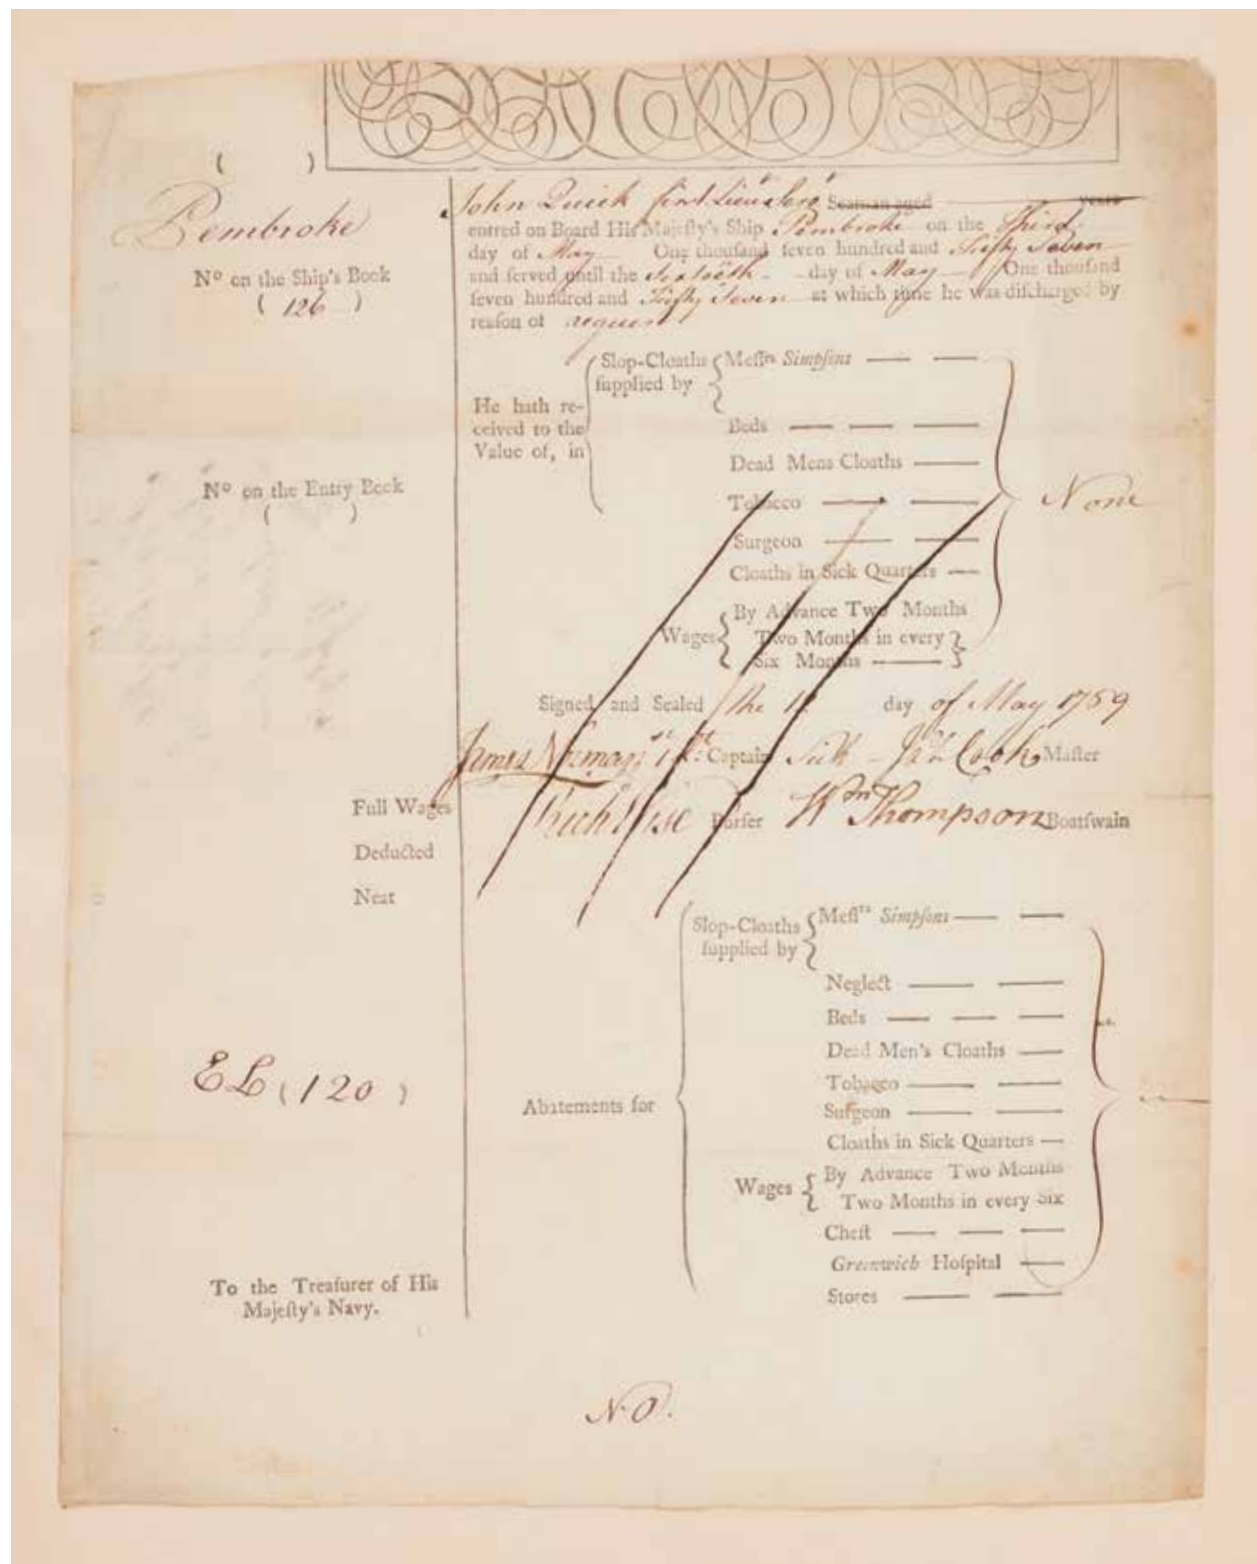 ( )
Pembroke
Nº on the Ship's Book
( 126 )
Nº on the Entry Book
( )
John Quick first Lieu Serv Seaman aged years
entred on Board His Majeſty's Ship Pembroke on the Third
day of May One thouſand ſeven hundred and Fifty Seven
and ſerved until the day of May One thouſand
ſeven hundred and Fifty Seven at which time he was diſcharged by
reaſon of request
He hath re-
ceived to the
Value of, in
Slop-Cloaths
ſupplied by
Meſſrs Simpſons
Beds
Dead Mens Cloaths
Tobacco
Surgeon
Cloaths in Sick Quarters
Wages
By Advance Two Months
Two Months in every
Six Months
None
Signed and Sealed the 11 day of May 1759
James Norman 1st Lt: Captain Sick Jas Cook Maſter
Rich Wise Purſer Wm Thompson Boatſwain
Full Wages
Deducted
Neat
E L ( 120 )
Abatements for
Slop-Cloaths
ſupplied by
Meſſrs Simpſons
Neglect
Beds
Dead Men's Cloaths
Tobacco
Surgeon
Cloaths in Sick Quarters
Wages
By Advance Two Months
Two Months in every Six
Cheſt
Greenwich Hoſpital
Stores
To the Treaſurer of His
Majeſty's Navy.
N.O.